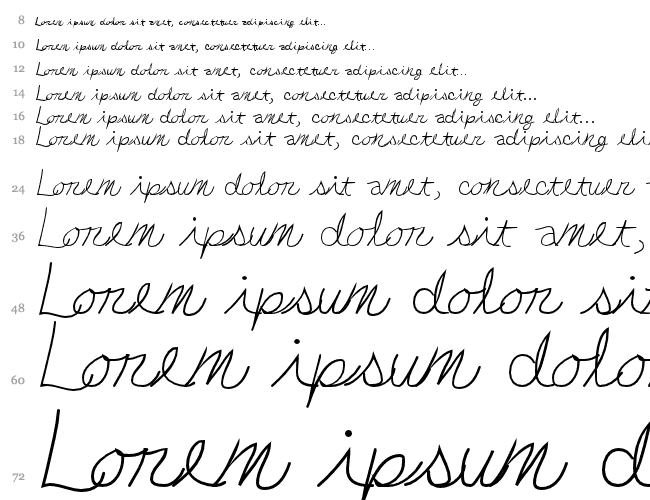 8 Lorem ipsum dolor sit amet, consectetuer adipiscing elit...
10 Lorem ipsum dolor sit amet, consectetuer adipiscing elit...
12 Lorem ipsum dolor sit amet, consectetuer adipiscing elit...
14 Lorem ipsum dolor sit amet, consectetuer adipiscing elit...
16 Lorem ipsum dolor sit amet, consectetuer adipiscing elit...
18 Lorem ipsum dolor sit amet, consectetuer adipiscing eli
24 Lorem ipsum dolor sit amet, consectetuer
36 Lorem ipsum dolor sit amet,
48 Lorem ipsum dolor sit
60 Lorem ipsum dolo
72 Lorem ipsum d